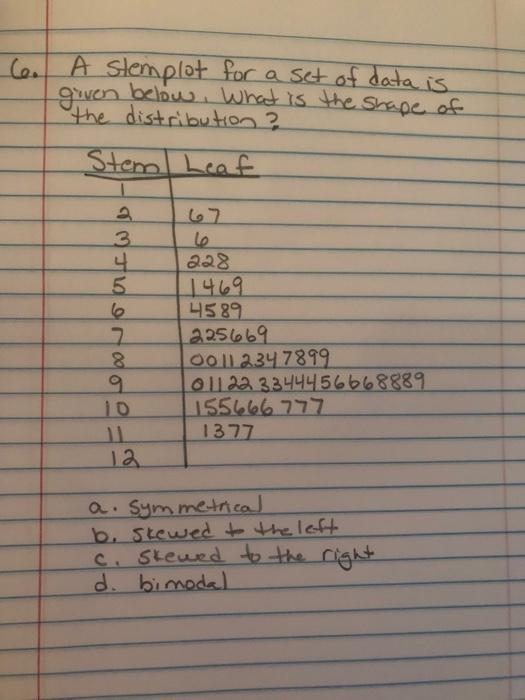 6. A stemplot for a set of data is
given below. What is the shape of
the distribution?
Stem | Leaf
1
2 | 67
3 | 6
4 | 228
5 | 1469
6 | 4589
7 | 225669
8 | 00112347899
9 | 01122333444456668889
10 | 155666777
11 | 1377
12
a. symmetrical
b. skewed to the left
c. skewed to the right
d. bimodal